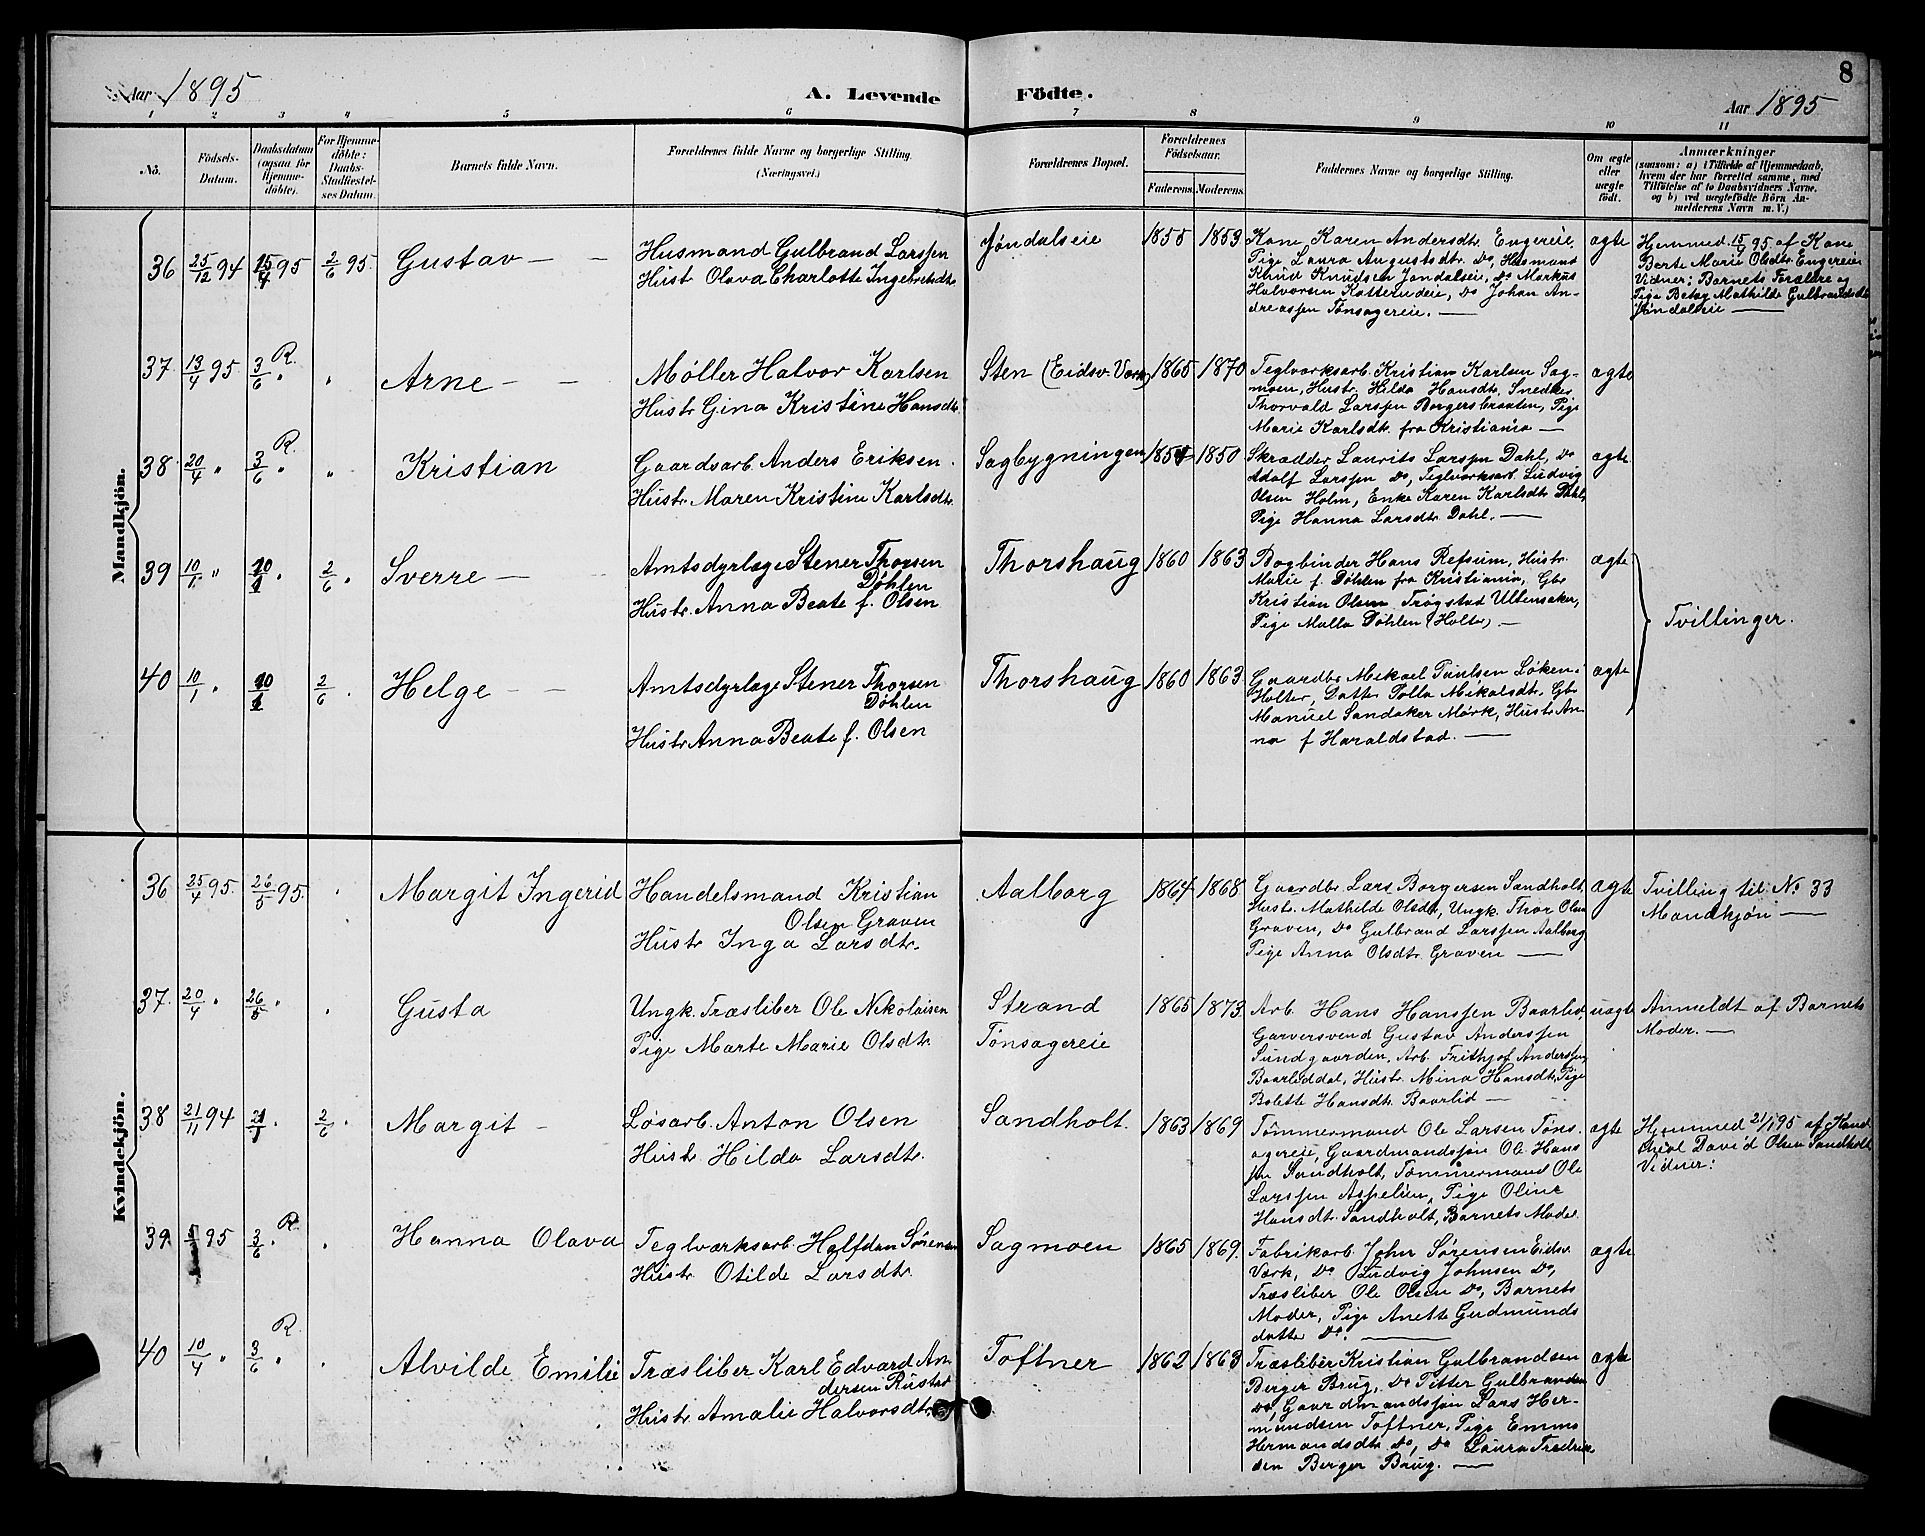 Aar 1895
A. Levende
Födte.
Aar 1895
8
1 2 3 4 5 6 7 8 9 10 11
No.
Födsels-
Datum.
Daabsdatum
(ogsaa for
Hjemme-
döbte).
For Hjemme-
döbte:
Daabs-
Stadfæstel-
ses Datum.
Barnets fulde Navn.
Forældrenes fulde Navne og borgerlige Stilling.
(Næringsvei.)
Forældrenes Bopæl.
Forældrenes
Födselsaar.
Faderens. Moderens.
Faddernes Navne og borgerlige Stilling.
Om ægte
eller
uægte
født.
Anmærkninger
(saasom: a) i Tilfælde af Hjemmedaab,
hvem der har forrettet samme, med
Tilföielse af to Daabsvidners Navne,
og b) ved uægtefödte Börn An-
melderens Navn m. V.)
Mandkjön.
36 25/12 94 15/4 95 2/6 95. Gustav
Husmand Gulbrand Larssen
Hust. Olava Charlotte Ingebretsdtr.
Jøndalseie 1855 1853
Kone Karen Andersdtr. Engereie,
Pige Laura Augustsdtr. Do, Husmand
Knud Knudsen Jøndalseie, Do Markus
Halvorsen Katterudeie, Do Johan An-
dreassen Tønsagereie.
ægte
Hjemmed. 15/4 95 af Kone
Berte Marie Olsdtr. Engereie
Vidner: Barnets Forældre og
Pige Betsy Mathilde Gulbrandsdtr
Jøndalseie
37. 13/4 95 3/6 " R. " Arne
Møller Halvor Karlsen
Hustr. Gina Kristine Hansdtr.
Sten (Eidsv. Værk) 1865 1870
Teglværksarb. Kristian Karlsen Sag-
moen, Hustr. Hilda Hansdtr. Snedker
Thorvald Larssen Borgersbraaten, Pige
Marie Karlsdtr. fra Kristiania
ægte
38. 20/4 " 3/6 " R. " Kristian
Gaardsarb. Anders Eriksen.
Hustr. Maren Kristine Karlsdtr.
Sagbygningen 1854 1850
Skrædder Laurits Larssen Dahl, Do
Adolf Larssen Do, Teglværksarb. Ludvig
Olsen Holm, Enke Karen Karlsdtr. Dahl,
Pige Hanna Larsdtr. Dahl.
ægte
39 10/1 " 10/4 " 2/6 " Sverre
Amtsdyrlæge Stener Thorsen
Døhlen
Hustr. Anna Beate f. Olsen
Thorshaug 1860 1863
Bogbinder Hans Refsum, Hustr.
Marie f. Døhlen fra Kristiania, Gbr.
Kristian Olsen Trøgstad Ullensaker,
Pige Malla Døhlen (Holter)
ægte
Tvillinger.
40 10/1 " 10/4 2/6 " Helge
Amtsdyrlæge Stener Thorsen
Døhlen
Hustr. Anna Beate f. Olsen
Thorshaug 1860 1863
Gaardbr. Mikael Paulsen Løken i
Holter, Datter Polla Mikalsdtr., Gbr.
Manuel Sandaker Mørk, Hustr. An-
na f Haraldstad.
ægte
Kvindekjön.
36 25/4 95. 26/5 95. Margit Ingerid
Handelsmand Kristian
Olsen Graven
Hustr. Inga Larsdtr.
Aalborg 1864 1868
Gaardbr. Lars Borgersen Sandholt,
Hustr. Mathilde Olsdtr., Ungk. Thor Olsen
Graven, Do Gulbrand Larssen Aalborg
Pige Anna Olsdtr. Graven
ægte
Tvilling til No 33
Mandkjøn
37. 20/4 " 26/5 " Gusta
Ungk. Træsliber Ole Nikolaisen
Pige Marte Marie Olsdtr.
Strand
Tønsagereie
1865 1873
Arb. Hans Hanssen Baarlid,
Garversvend Gustav Anderssen
Sundgaarden, Arb. Frithjof Anderssen
Baarliddal, Hustr. Mina Hansdtr., Pige
Bolette Hansdtr. Baarlid
uægte
Anmeldt af Barnets
Moder.
38 21/11 94 21/1 " 2/6 " Margit
Løsarb. Anton Olsen
Hustr. Hilda Larsdtr.
Sandholt. 1863 1869
Tømmermand Ole Larsen Tøns-
agereie, Gaardmandssøn Ole Hans
sen Sandholt, Tømmermand Ole
Larssen Aspelien, Pige Oline
Hansdtr. Sandholt, Barnets Moder.
ægte
Hjemmed. 21/1 95 af
David Olsen Sandholt
Vidner:
39. 95 3/6 " R. Hanna Olava
Teglværksarb. Halfdan Sørensen
Hustr. Otilde Larsdtr.
Sagmoen 1865 1869.
Fabrikarb. John Sørensen Eidsv.
Værk, Do Ludvig Johnsen Do,
Træsliber Ole Olsen Do, Barnets
Moder, Pige Anette Gudmunds
datter Do.
ægte
40 10/4 " 3/6 " R. Alvilde Emilie
Træsliber Karl Edvard An-
dersen Rustad
Hustr. Amalie Halvorsdtr.
Toftner 1862 1863
Træsliber Kristian Gulbrandsen
Berger Brug, Do Petter Gulbrandsen
Do, Gaardmandssøn Lars Her-
mundsen Toftner, Pige Emma
Hermandsdtr. Do, Do Laura Fredrik
sen Berger Brug.
ægte